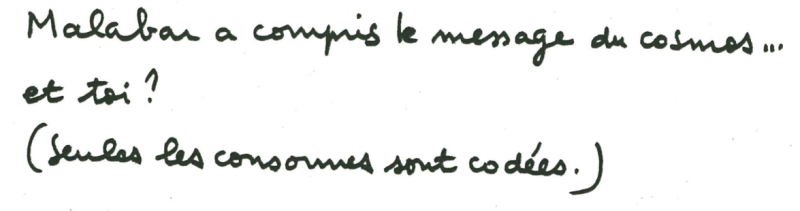 Malabar a compris le message du cosmos...
et toi ?
(Seules les consonnes sont codées.)